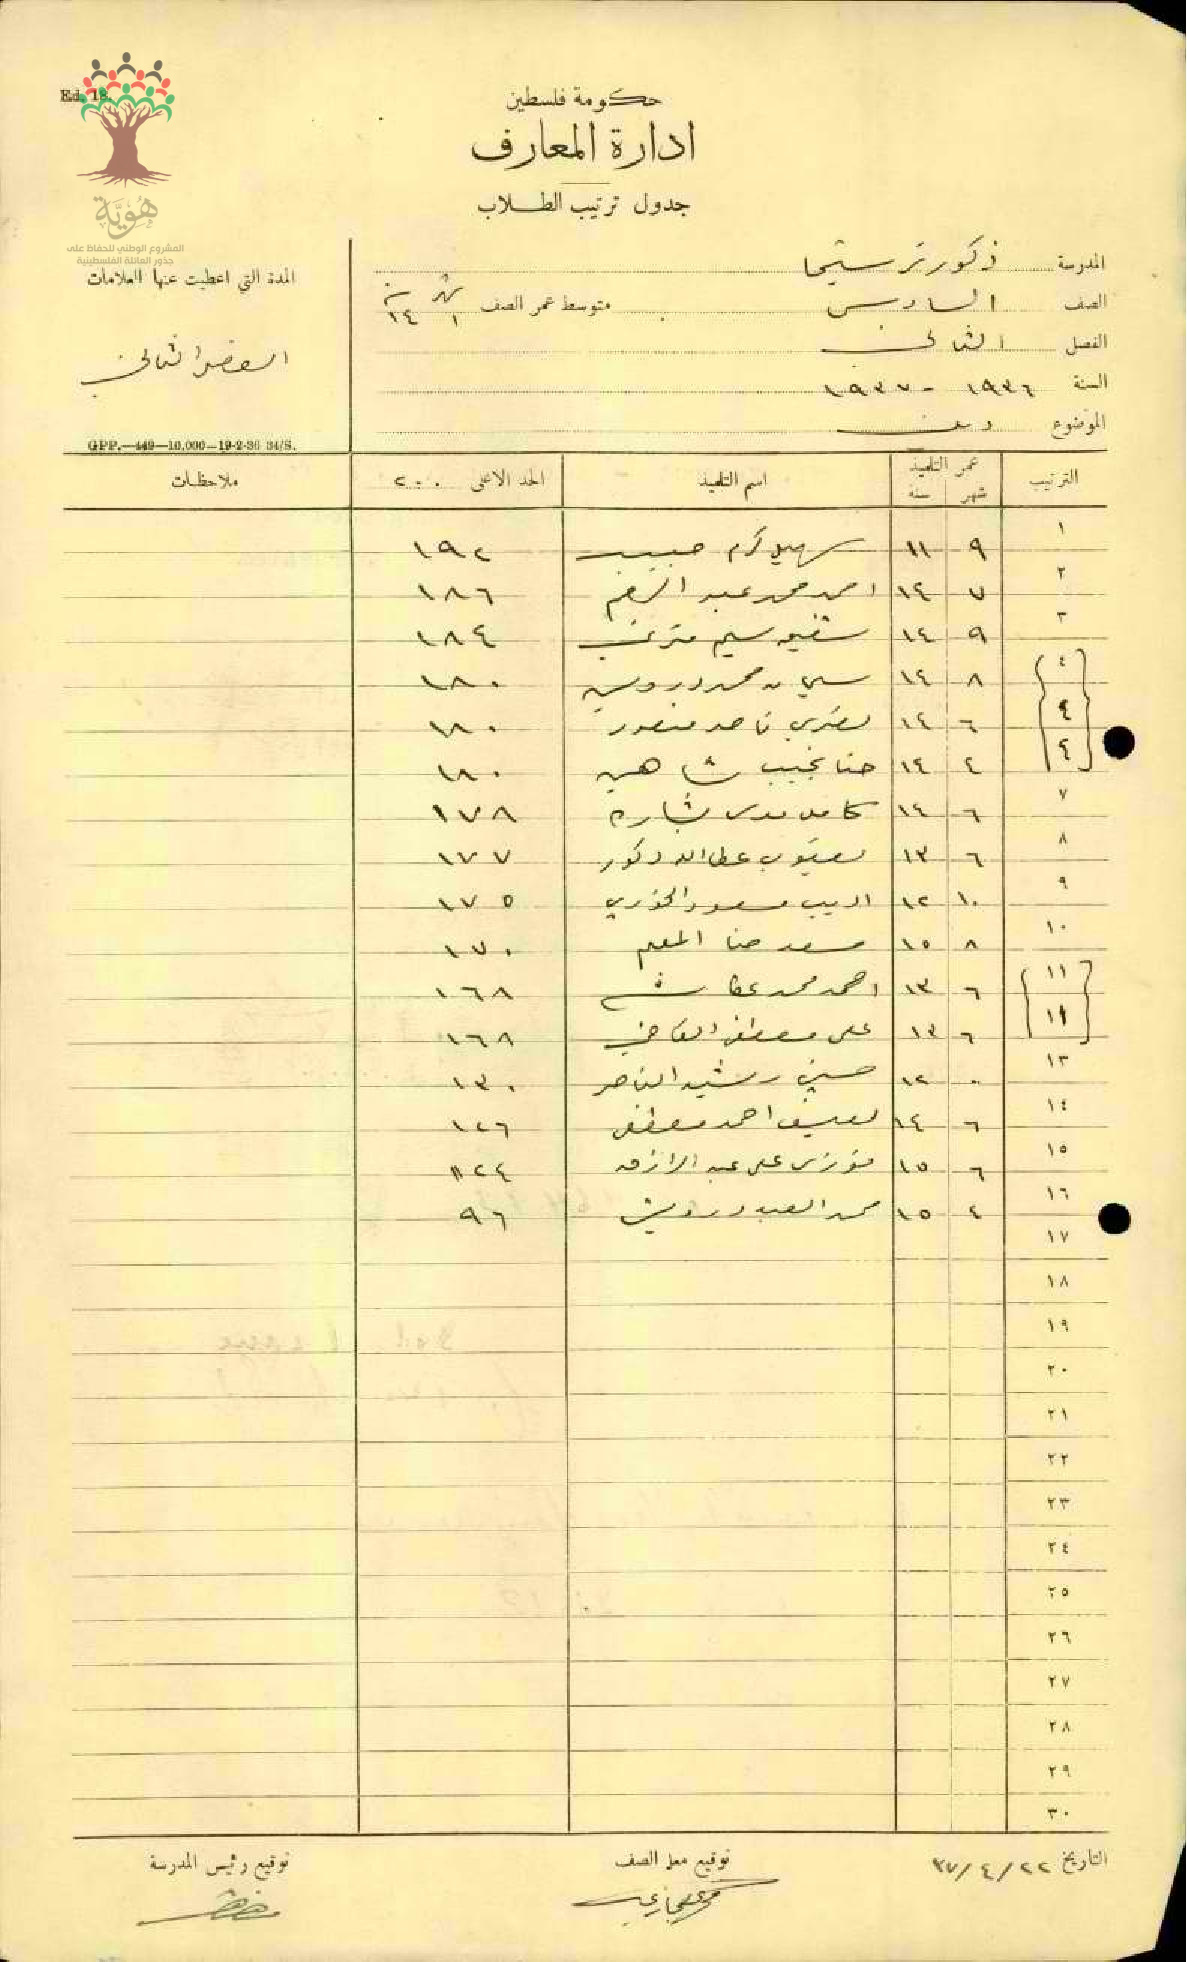 Ed. 18.
هُوِيَّة
المشروع الوطني للحفاظ على
جذور العائلة الفلسطينية
حكومة فلسطين
ادارة المعارف
جدول ترتيب الطلاب
المدرسة ذكور ترشيحا
الصف السادس متوسط عمر الصف شهر ١ سنة ١٤
الفصل الثاني
السنة ١٩٣٦ - ١٩٣٧
الموضوع
المدة التي اعطيت عنها العلامات
الفصل الثاني
GPP.—449—10,000—19-2-36 34/S.
الترتيب عمر التلميذ شهر سنة اسم التلميذ الحد الاعلى ٢٠٠ ملاحظات
١ ٩ ١١ سهيل كرم حبيب ١٩٢
٢ ٧ ١٤ احمد محمد عبد الرحيم ١٨٦
٣ ٩ ١٤ شفيق سليم ١٨٤
٤ ٨ ١٤ سليمان محمد درويش ١٨٠
٤ ٦ ١٤ ناصر منصور ١٨٠
٤ ٤ ١٤ حنا نجيب شاهين ١٨٠
٧ ٦ ١٤ كامل موسى بشاره ١٧٨
٨ ٦ ١٣ يعقوب عطا الله دكور ١٧٧
٩ ١٠ ١٢ اديب مسعود الخوري ١٧٥
١٠ ٨ ١٥ سعد حنا المعلم ١٧٠
١١ ٦ ١٣ احمد محمد ١٦٨
١١ ٦ ١٣ علي مصطفى القاضي ١٦٨
١٣ ٠ ١٢ حسني رشيد الناصر ١٣٠
١٤ ٦ ١٤ احمد مصطفى ١٢٦
١٥ ٦ ١٥ فوزي علي عبد الرازق ١٢٤
١٦ ٤ ١٥ محمد العبد درويش ٩٦
١٧
١٨
١٩
٢٠
٢١
٢٢
٢٣
٢٤
٢٥
٢٦
٢٧
٢٨
٢٩
٣٠
التاريخ ٢٢/٤/٣٧
توقيع معلم الصف
توقيع رئيس المدرسة